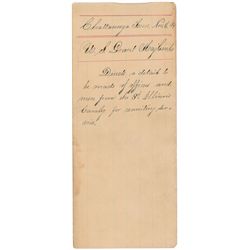 Chattanooga Tenn. Nov
U. S. Grant
Directs a detail to
be made of officers and
men from the Illinois
Cavalry for recruiting ser-
vice.